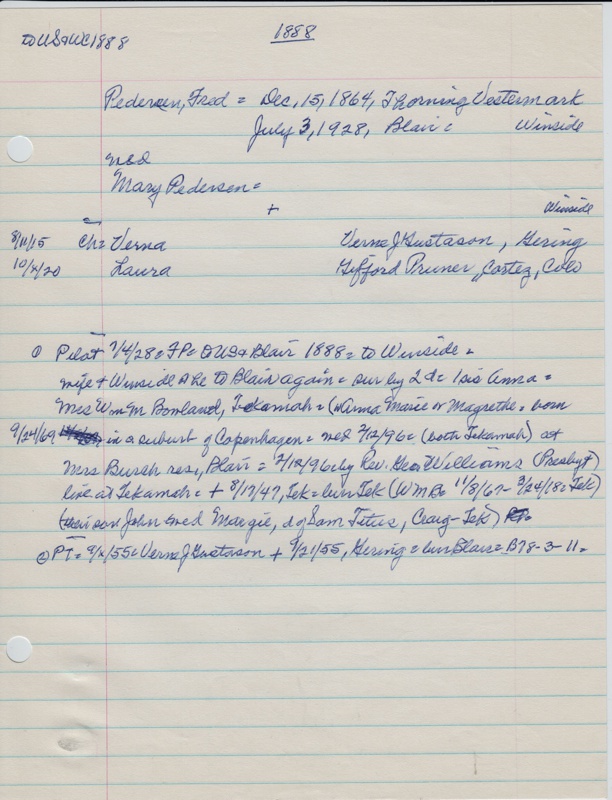 1888
to US & WC 1888
Pedersen, Fred = Dec, 15, 1864, Thorning Vestermark
July 3, 1928, Blair = Winside
wed
Mary Pedersen =
+ Winside
8/11/15 Ch = Verna Verne J Gustason, Gering
10/x/20 Laura Gifford Pruner, Cortez, Colo
① Pilot 7/4/28 = FP = to US & Blair 1888 = to Winside =
wife + Winside & he to Blair again = sur by 2 d = 1 sis Anna =
Mrs Wm M Bowland, Tekamah = (Anna Marie or Magrethe = born
9/24/69 in a suburb of Copenhagen = wed 2/12/96 = (both Tekamah) at
Mrs Burch res, Blair = 2/12/96 by Rev. Geo Williams (Presbyt)
live at Tekamah = + 8/17/47, Tek = bur Tek (WMB = 11/8/67 - 3/24/18 = Tek)
(their son John wed Margie, d of Sam Titus, Craig-Tek)
② PT = 9/x/55 = Verne J Gustason + 9/21/55, Gering = bur Blair = B78-3-11 =